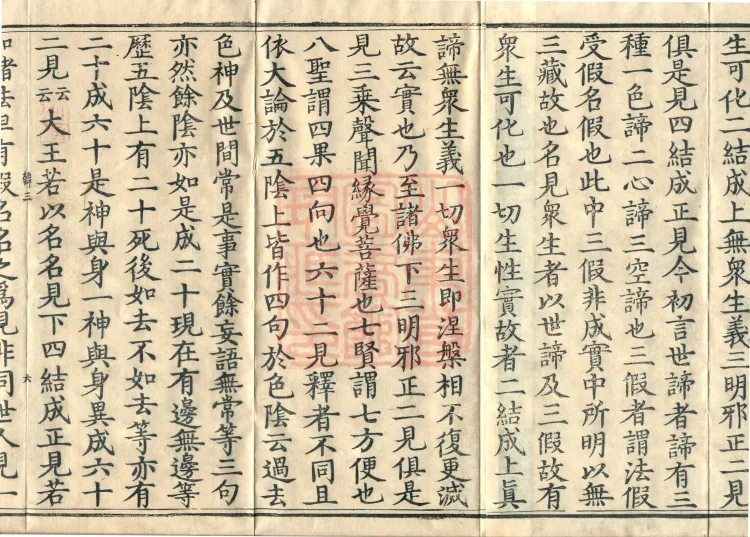 生可化二結成上無衆生義三明邪正二見
俱是見四結成正見今初言世諦者諦有三
種一色諦二心諦三空諦也三假者謂法假
受假名假也此中三假非成實中所明以無
三藏故也名見衆生者以世諦及三假故有
衆生可化也一切生性實故者二結成上眞
諦無衆生義一切衆生即涅槃相不復更滅
故云實也乃至諸佛下三明邪正二見俱是
見三乘聲聞縁覺菩薩也七賢謂七方便也
八聖謂四果四向也六十二見釋者不同且
依大論於五陰上皆作四句於色陰云過去
色神及世間常是事實餘妄語無常等三句
亦然餘陰亦如是成二十現在有邊無邊等
歷五陰上有二十死後如去不如去等亦有
二十成六十是神與身一神與身異成六十
二見云云大王若以名名見下四結成正見若
韓三
六
諸法但有假名名之爲見非同世人見一